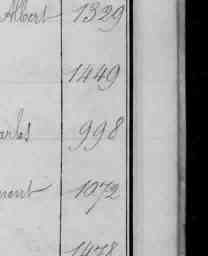 Albert 1329
1449
arles 998
ment 1072
1478